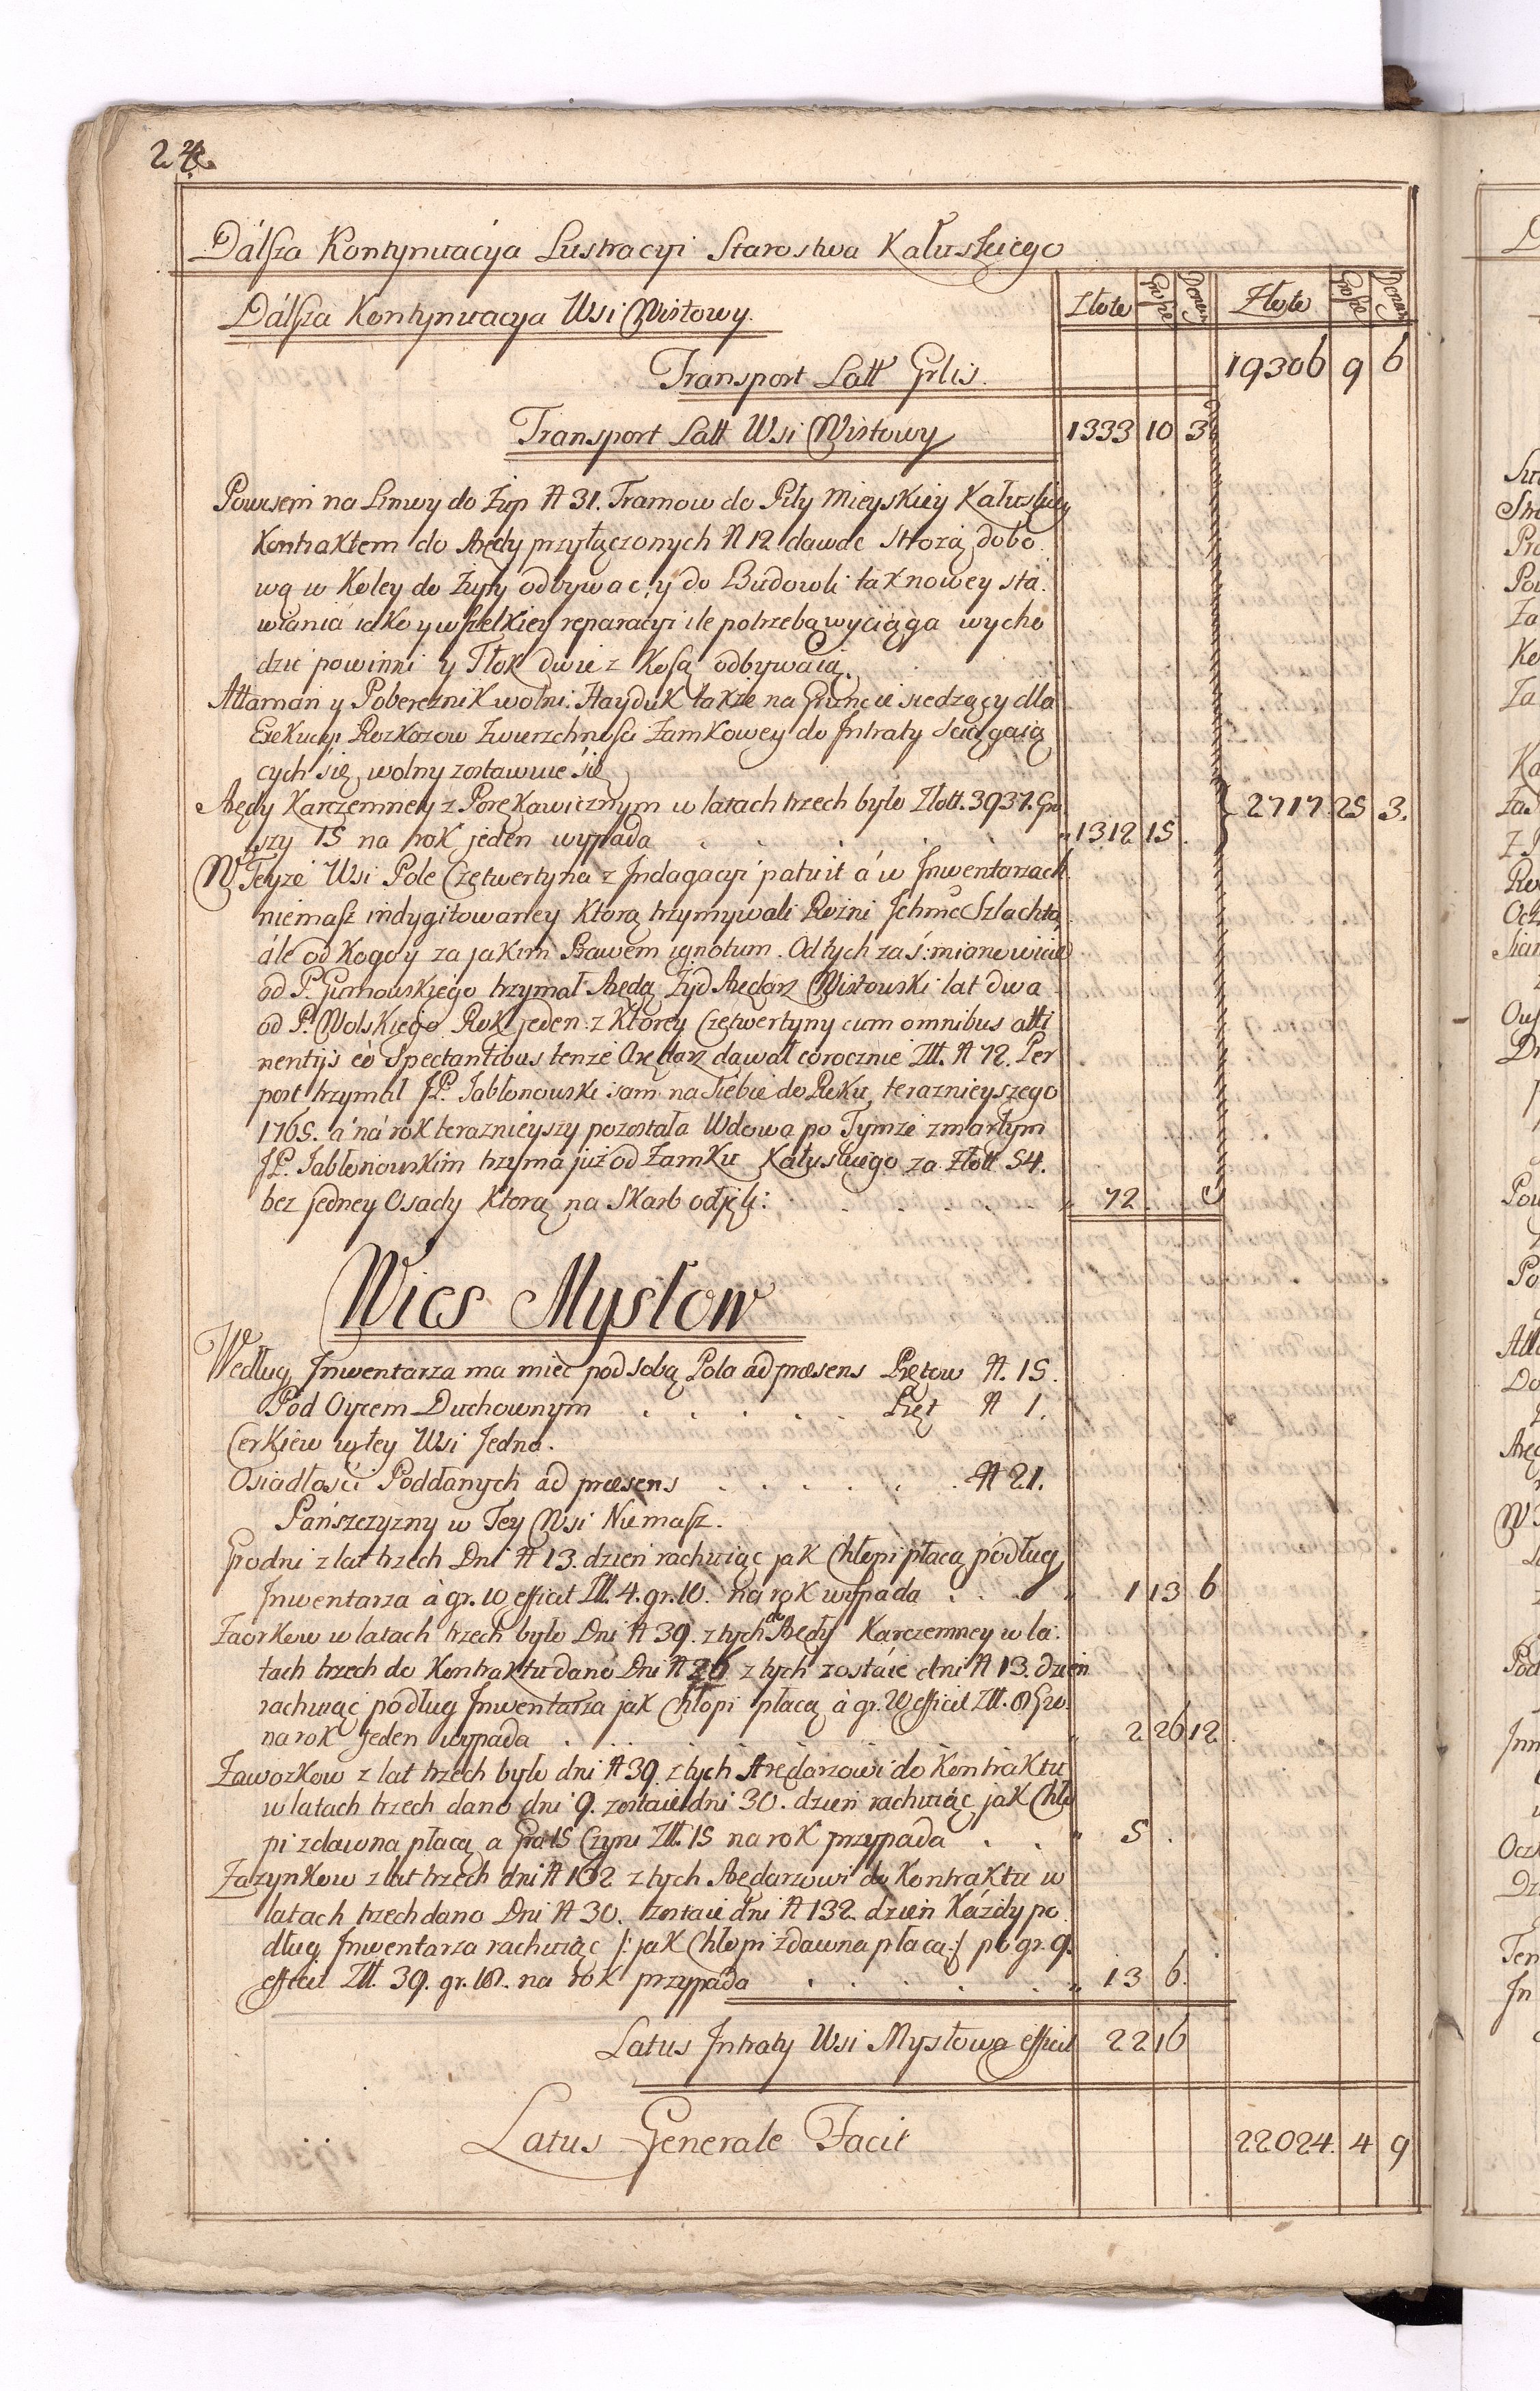 24
Dálsza Kontynuacya Lustracyi Starostwa Kałuskiego
Dálsza Kontynuacya Wsi Wistowy. Złote Grosze Denar Złote Grosze Denar
Transport Latt Grlis. 19306 9 6
Transport Latt Wsi Wistowy 1333 10 3
Powsem na Linwy do Żup N 31. Tramow do Piły Mieyskiey Kałuskiey
Kontraktem do Arędy przyłączonych N 12 dawac Strożą dobo
wą w Koley do Żupy odbywac, y do Budowli tak nowey sta.
wiania iako y wszelkiey reparacyi ile potrzeba wyciąga wycho
dzić powinni y Tłok dwie z Kosą odbywaią.
Attaman y Pobereznik wolni. Hayduk także na Gruncie siedzący dla
Exekucyi Rozkazow Zwierzchnosci Zamkowey do Intraty sciągaią
cych się wolny zostawuie się
Arędy Karczemney z Porękawicznym w latach trzech było Złott. 3937. Gro
szy 15 na rok jeden wypada . . . . 1312 15. 2717 25 3.
W Teyże Wsi Pole Czętwertyna z Indagacyi patuit á w Inwentarzach
niemasz indygitowaney Ktorą trzymywali Rożni Ichmć Szlachta
ále od Kogo y za jakim Prawem ignotum. Od tych zaś: mianowicie
od P. Gurnowskiego trzymał Arędą Żyd Arędarz Wistowski lat dwa
od P. Wolskiego Rok jeden: z Ktorey Czętwertyny cum omnibus atti
nentijs eò spectantibus tenże Arędarz dawał corocznie Złł. N 72. Per
post trzymał JP. Jabłonowski sam na Siebie do Roku teraznieyszego
1765. á ná rok teraznieyszy pozostała Wdowa po Tymże zmarłym
JP. Jabłonowskim trzyma już od Zamku Kałuskiego za Złott 54.
bez jedney Osady Ktorą na Skarb odjęli: . . . . 72
Wies Mysłow
Według Inwentarza ma mieć pod sobą Pola ad præsens Prętow N. 15.
Pod Oycem Duchownym . . . . . Pręt N 1.
Cerkiew w tey Wsi Jedna.
Osiadłości Poddanych ad præsens . . . . . . N 21.
Pańszczyzny w Tey Wsi Niemasz.
Grodni z lat trzech Dni N 13. dzień rachuiąc jak Chłopi płacą podług
Inwentarza à gr. 10 efficit Złł. 4. gr. 10. na rok wypada . . . 1 13 6
Zaorkow w latach trzech było Dni N 39. z tych do Arędy Karczemney w la.
tach trzech do Kontraktu dano Dni N 26 z tych zostaie dni N 13. dzien
rachuiąc podług Inwentarza jak Chłopi płacą à gr. efficit Złł. 8 Gr.
na rok Jeden wypada . . . 2 26 12
Zawozkow z lat trzech było dni N 39. z tych Arędarzowi do Kontraktu
w latach trzech dano dni 9. zostaie dni 30. dzień rachuiąc jak Chło
pi zdawna płacą a Gro 15 Czyni Złł. 15 na rok przypada . . 5 .
Zażynkow z lat trzech dni N 162 z tych Arędarzowi do Kontraktu w
latach trzech dano Dni N 30. zostaie dni N 132 dzień Káżdy po
dług Inwentarza rachuiąc /: jak Chłopi zdawna płacą :/ po gr. 9.
efficit Złł. 39. gr. 18. na rok przypada . . . . . 13 6.
Latus Intraty Wsi Mysłowa efficit 22 16
Latus Generale Facit 22024. 4 9